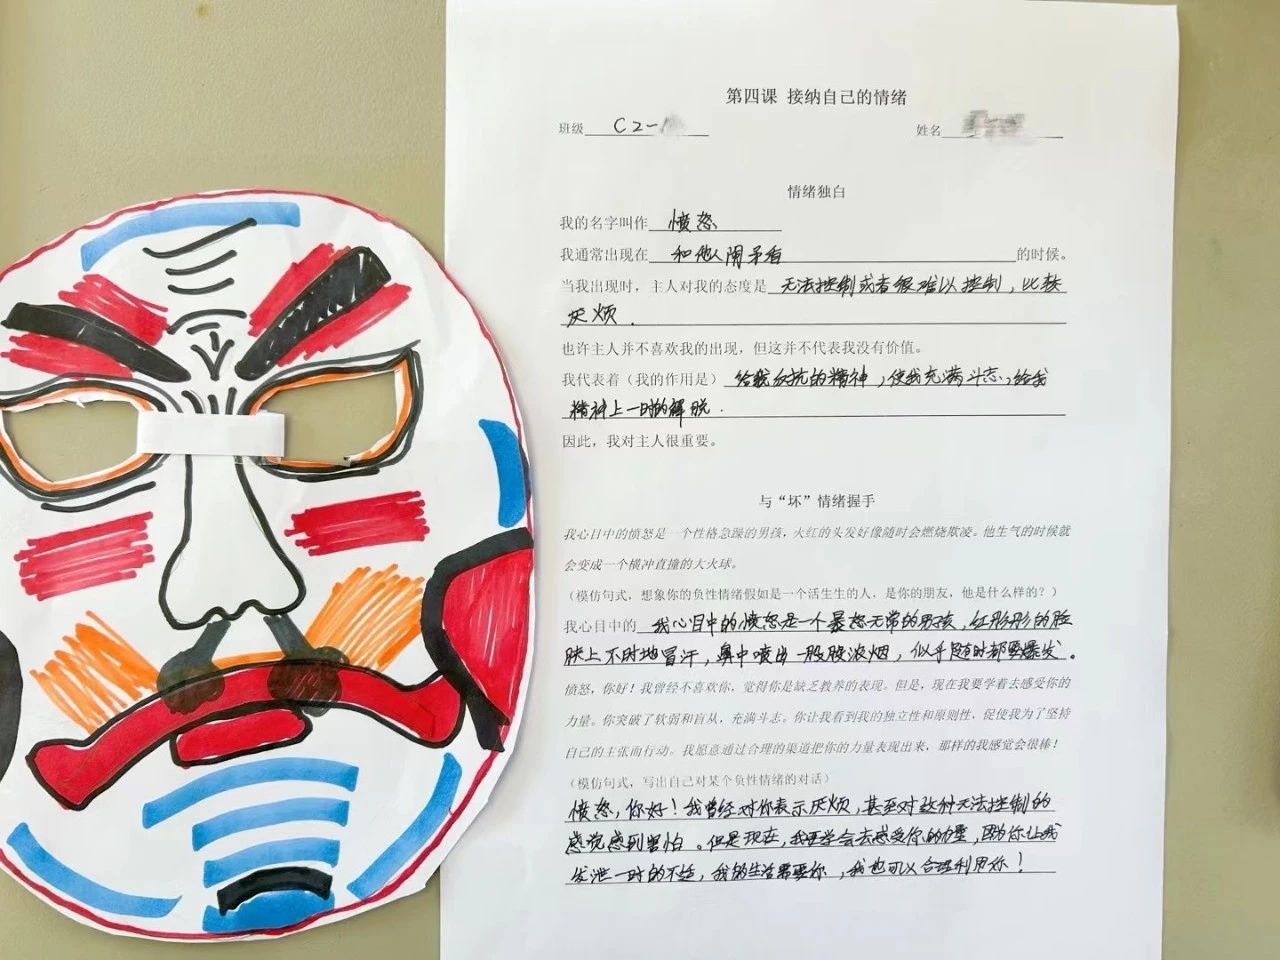 第四课 接纳自己的情绪
班级 C2- 姓名
情绪独白
我的名字叫作 愤怒
我通常出现在 和他人闹矛盾 的时候。
当我出现时，主人对我的态度是 无法控制或者很难以控制，比较
厌烦．
也许主人并不喜欢我的出现，但这并不代表我没有价值。
我代表着（我的作用是） 给我反抗的精神，使我充满斗志，给我
精神上一时的解脱．
因此，我对主人很重要。
与“坏”情绪握手
我心目中的愤怒是一个性格急躁的男孩，火红的头发好像随时会燃烧欺凌。他生气的时候就
会变成一个横冲直撞的大火球。
（模仿句式，想象你的负性情绪假如是一个活生生的人，是你的朋友，他是什么样的？）
我心目中的 我心目中的愤怒是一个暴怒无常的男孩，红彤彤的脸
肤上不时地冒汗，鼻中喷出一股股浓烟，似乎随时都要爆发。
愤怒，你好！我曾经不喜欢你，觉得你是缺乏教养的表现。但是，现在我要学着去感受你的
力量。你突破了软弱和盲从，充满斗志。你让我看到我的独立性和原则性，促使我为了坚持
自己的主张而行动。我愿意通过合理的渠道把你的力量表现出来，那样的我感觉会很棒！
（模仿句式，写出自己对某个负性情绪的对话）
愤怒，你好！我曾经对你表示厌烦，甚至对这种无法控制的
感觉感到害怕。但是现在，我要学会去感受你的力量，因为你让我
发泄一时的不 ，我的生活需要你，我也可以合理利用你！